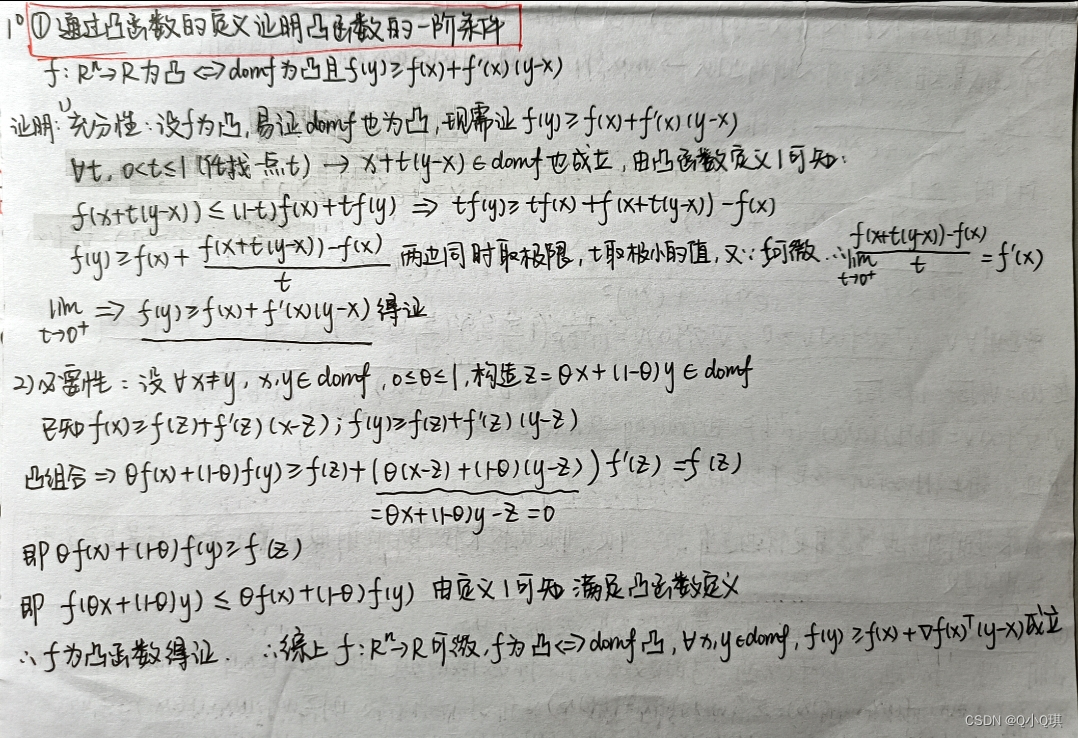 1° ①通过凸函数的定义证明凸函数的一阶条件
f: Rⁿ→R为凸 ⟺ domf为凸且f(y)≥f(x)+f'(x)(y-x)
证明: 1) 充分性: 设f为凸, 易证domf也为凸, 现需证f(y)≥f(x)+f'(x)(y-x)
∀t, 0<t≤1 (任找一点t) → x+t(y-x)∈domf也成立, 由凸函数定义1可知:
f(x+t(y-x))≤(1-t)f(x)+tf(y) ⇒ tf(y)≥tf(x)+f(x+t(y-x))-f(x)
f(y)≥f(x)+ f(x+t(y-x))-f(x) / t 两边同时取极限, t取极小的值, 又∵f可微 ∴ lim t→0⁺ f(x+t(y-x))-f(x) / t = f'(x)
lim t→0⁺ ⇒ f(y)≥f(x)+f'(x)(y-x)得证
2) 必要性: 设∀x≠y, x,y∈domf, 0≤θ≤1, 构造z=θx+(1-θ)y∈domf
已知f(x)≥f(z)+f'(z)(x-z); f(y)≥f(z)+f'(z)(y-z)
凸组合⇒θf(x)+(1-θ)f(y)≥f(z)+(θ(x-z)+(1-θ)(y-z))f'(z)=f(z)
=θx+(1-θ)y-z=0
即θf(x)+(1-θ)f(y)≥f(z)
即 f(θx+(1-θ)y)≤θf(x)+(1-θ)f(y) 由定义1可知满足凸函数定义
∴f为凸函数得证. ∴综上 f: Rⁿ→R可微, f为凸⟺domf凸, ∀x,y∈domf, f(y)≥f(x)+∇f(x)ᵀ(y-x)成立
CSDN @Q小Q琪